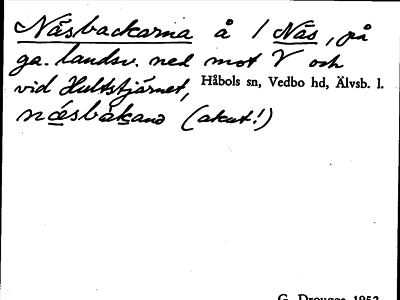 Näsbackarna å 1 Näs, på
ga. landsv. ned mot V och
vid Hultstjärnet, Håbols sn, Vedbo hd, Älvsb. l.
(akut!)